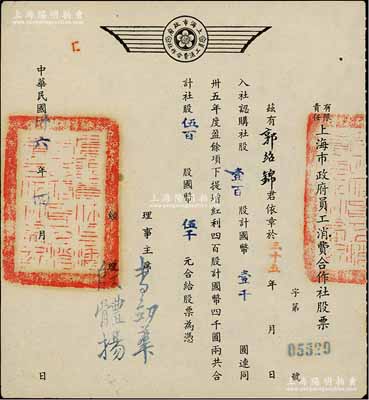 上海陽明拍賣
上海市政府
員工消費合作社
有限
責任 上海市政府員工消費合作社股票
字第 號
05529
茲有郭紹錦君依章於三十五年 月 日
入社認購社股壹百股計國幣壹千圓連同
卅五年度盈餘項下提增紅利四百股計國幣四千圓兩共合
計社股伍百股國幣伍千元合給股票為憑
理事主席 李劍華
經理 體揚
中華民國卅六年四月 日
上海陽明拍賣